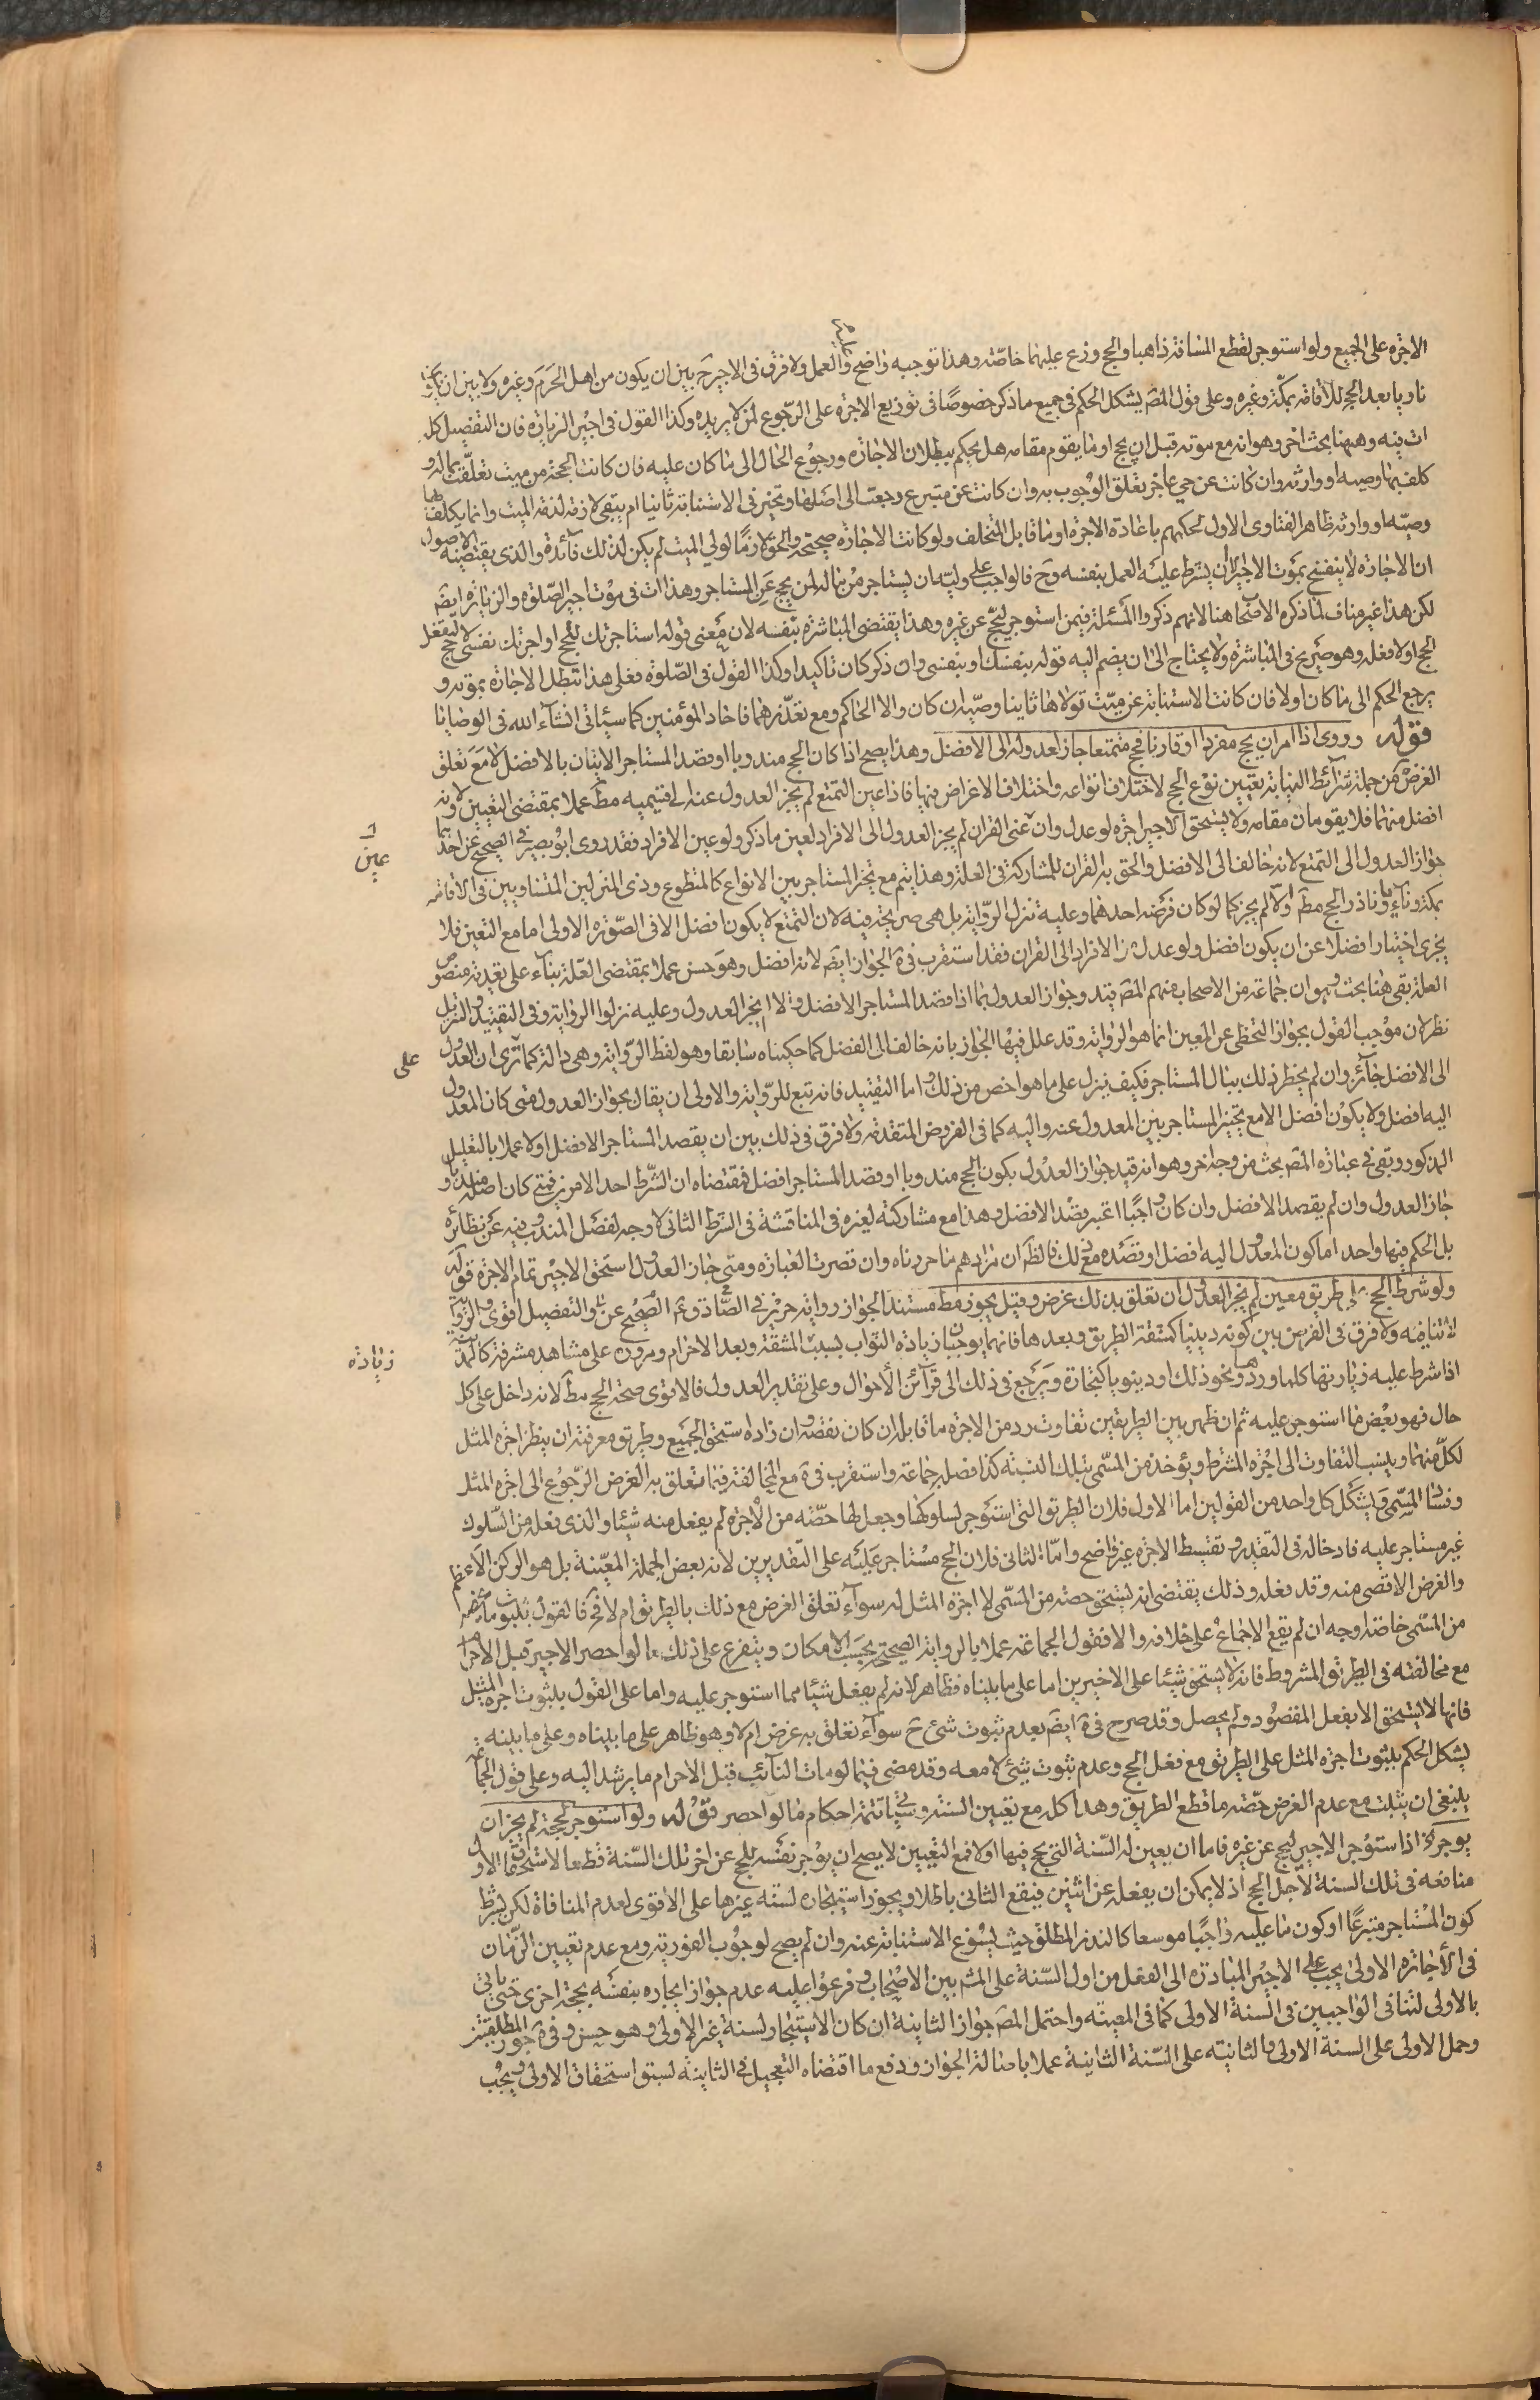 الاجرة على الجميع ولو استوجر لقطع المسافة ذاهبا والحج وزع عليهما خاصّة وهذا توجيه واضح والعمل ولا فرق فى الاجير ح بين ان يكون من اهل الحرم وغيره ولا بين ان يكون
ناويا بعد الحج للاقامة بمكّة وغيره وعلى قول المصَ يشكل الحكم فى جميع ما ذكر خصوصًا فى توزيع الاجرة على الرّجوع لمن لا يريده وكذا القول فى اجير الزيارة فان التفصيل كل
ات فيه وههنا بحث اخر وهو انه مع موته قبل ان يحج او ما يقوم مقامه هل يحكم ببطلان الاجازه ورجوع الحال الى ما كان عليه فان كانت الحجة من ميت تعلّقت بماله و
كلف بها وصيه او وارثه وان كانت عن حي عاجز تعلق الوجوب به وان كانت عن متبرع رجعت الى اصلها وتخير فى الاستنابة ثانيا ام يبقى لازمة لذمة الميت وانما يكلف بها
وصيّه او وارثه ظاهر الفتاوى الاول لحكمهم باعادة الاجرة او ما قابل التخلف ولو كانت الاجازه صحيحة والحق لازمًا لولي الميت لم يكن لذلك فآئدة والذى يقتضيه الاصول
ان الاجازة لا ينفسخ بموت الاجير الا ان يشرط عليه العمل بنفسه وح فالواجب على وليّه ان يستاجر من ماله لمن يحج عن المستاجر وهذا ات فى موت اجير الصّلوة والزيارة ايضَ
لكن هذا غير مناف لما ذكره الاصحاب هنا لانهم ذكروا المسئلة فيمن استوجر ليحجّ عن غيره وهذا يقتضى المباشرة بنفسه لان معنى قوله استاجرتك لتحج او اجرتك نفسى لاحج ليفعل
الحج اولا فعله وهو صريح فى المباشرة ولا يحتاج الى ان يضم اليه قوله بنفسك او بنفسى وان ذكر كان تاكيدا وكذا القول فى الصّلوة فعلى هذا تبطل الاجازة بموته و
يرجع الحكم الى ما كان اولا فان كانت الاستنابة عن ميّت تولاها ثاينا وصيّه ان كان والا الحاكم ومع تعذّرهما فاحاد المؤمنين كما سيئاتى انشآء الله فى الوصايا
قوله وروى اذا امر ان يحج مفردا او قارنا فحج متمتعا جاز لعدوله الى الافضل وهذا يصح اذا كان الحج مندوبا او قصد المستاجر الاتيان بالافضل لا مع تعلق
الغرض من جملة شرآئط النيابة تعيين نوع الحج لاختلاف انواعه واختلاف الاغراض فيها فاذا عين التمتع لم يجز العدول عنه الى قسيميه مطَ عملا بمقتضى التعيين ولانه
افضل منهما فلا يقومان مقامه ولا يستحق الاجير اجرة لو عدل وان عنى القران لم يجز العدول الى الافراد لعين ما ذكر ولو عين الافراد فقد روى ابو بصير فى الصحيح عن احدهما
عين
جواز العدول الى التمتع لانه خالف الى الافضل والحق به القران للمشاركة فى العلة وهذا يتم مع تخير المستاجر بين الانواع كالمتطوع وذى المنزلين المتساويين فى الاقامة
بمكة ونآءٍ وناذر الحج مطَ والا لم يجز كما لو كان فرضه احدهما وعليه تنزل الرّواية بل هى صريحة فيه لان التمتع لا يكون افضل الا فى الصّورة الاولى اما مع التعين فلا
يجزى اختيارا فضلا عن ان يكون افضل ولو عدل من الافراد الى القران فقد استقرب فى ة الجواز ايضَ لانه افضل وهو حسن عملا بمقتضى العلة بنآء على تعدية منصوص
العلة بقى هنا بحث وهو ان جماعة من الاصحاب منهم المصَ قيد وجواز العدول بما اذا قصد المستاجر الافضل والا لا يجز العدول وعليه نزلوا الرواية وفى التقييد والتنزيل
نظر لان موجب القول بجواز التخطى عن المعين انما هو الرواية وقد علل فيها الجواز بانه خالف الى الفضل كما حكيناه سابقا وهو لفظ الرّواية وهى دالة كما ترى ان العدول
على
الى الافضل جآئز وان لم يخطر ذلك ببال المستاجر فكيف ينزل على ما هو اخص من ذلك واما التقييد فانه تبع للرّواية والاولى ان يقال بجواز العدول متى كان المعدول
اليه افضل ولا يكون افضل الا مع تخير المستاجر بين المعدول عنه واليه كما فى الفروض المتقدمة ولا فرق فى ذلك بين ان يقصد المستاجر الافضل اولا عملا بالتعليل
المذكور وبقى فى عبارة المصَ بحث من وجه اخر وهو انه قيد جواز العدول بكون الحج مندوبا او قصد المستاجر افضل فمقتضاه ان الشّرط احد الامرين فمتى كان اصله مندوبا
جاز العدول وان لم يقصد الافضل وان كان واجبًا اعتبر قصد الافضل وهذا مع مشاركته لغيره فى المناقشة فى الشرط الثانى لا وجه لفصل المندوب فيه عن نظائره
بل الحكم فيها واحد اما كون المعدول اليه افضل او قصده مع ذلك فالظَ ان مرادهم ما حررناه وان قصرت العبارة ومتى جاز العدول استحق الاجير تمام الاجرة قوله
ولو شرط الحج على طريق معين لم يجز العدول ان تعلق بذلك غرض وقيل يجوز مطَ مستند الجواز رواية حريز فى الصحيح عن الصّادق ع والتفصيل اقوى والرّواية
لا تنافيه ولا فرق فى الغرض بين كونه دينيا كمشقة الطريق وبعدها فانهما يوجبان زيادة الثواب بسبب المشقة وبعد الاحرام ومروره على مشاهد مشرفة كالمدينة
زيادة
اذا شرط عليه زيارتها كلما وردها ونحو ذلك او دينويا كتجارة ويرجع فى ذلك الى قرآئن الأحوال وعلى تقدير العدول فالاقوى صحة الحج مطَ لانه داخل على كل
حال فهو بعض ما استوجر عليه ثم ان ظهر بين الطريقين تفاوت رد من الاجرة ما قابله ان كان نقصه وان زاد استحق الجميع وطريق معرفته ان ينظر اجرة المثل
لكلّ منهما وينسب التفاوت الى اجرة المشرط ويؤخذ من المسّمى بتلك النسبة كذا فصله جماعة واستقرب فى ة مع المخالفة فيما تعلق به الغرض الرّجوع الى اجرة المثل
وفساد المسّمى ويشكل كل واحد من القولين اما الاول فلان الطريق التى استوجر لسلوكها وجعل لها حصّة من الاجرة لم يفعل منه شيئا والذى فعله من السّلوك
غير مستاجر عليه فادخاله فى التقدير وتقسيط الاجرة غير واضح وامّا الثانى فلان الحج مستاجر عليه على التّقديرين لانه بعض الجملة المعيّنة بل هو الركن الاعظم
والغرض الاقصى منه وقد فعله وذلك يقتضى انه يستحق حصته من المسّمى لا اجرة المثل له سوآء تعلق الغرض مع ذلك بالطريق ام لا فح فالقول بثبوت ما يخصه
من المسّمى خاصّة اوجه ان لم يقع الاجماع على خلافه والا فقول الجماعة عملا بالرواية الصحيحة بحسب الامكان ويتفرع على ذلك ما لو احصر الاجير قبل الاحرام
مع مخالفته فى الطريق المشروط فانه لا يستحق شيئا على الاخيرين اما على ما بيناه فظاهر لانه لم يفعل شيئا مما استوجر عليه واما على القول بثبوت اجرة المثل
فانها لا يستحق الا بفعل المقصود ولم يحصل وقد صرح فى ة ايضَ بعدم ثبوت شئ ح سوآء تعلق به غرض ام لا وهو ظاهر على ما بيناه وعلى ما بينه
يشكل الحكم بثبوت اجرة المثل على الطريق مع فعل الحج وعدم ثبوت شئ لا معه وقد مضى فيما لو مات النآئب قبل الاحرام ما يرشد اليه وعلى قول الجماعة
ينبغى ان يثبت مع عدم الغرض حصّة ما قطع الطريق وهذا كله مع تعيين السنة وسيئاتى تتمة احكام ما لو احصر قوله ولو استوجر لحجة لم يجز ان
يوجر اذا استوجر الاجير ليحج عن غيره فاما ان يعين له السّنة التى يحج فيها اولا فمع التعيين لا يصح ان يؤجر نفسه للحج عن اخر تلك السّنة قطعا لاستحقاق الاول
منافعه فى تلك السنة لاجل الحج اذ لا يمكن ان يفعله عن اثنين فيقع الثانى باطلا ويجوز استيجاره لسنة غيرها على الاقوى لعدم المنافاة لكن يشرط
كون المستاجر متبرعًا او كون ما عليه واجبًا موسعا كالنذر المطلق حيث يسوغ الاستنابة عنه وان لم يصح لوجوب الفورية ومع عدم تعيين الزّمان
فى الاجازة الاولى يجب على الاجير المبادرة الى الفعل من اول السّنة على المشَ بين الاصحاب وفرعوا عليه عدم جواز ايجاره بنفسه بحجة اخرى حتى ياتى
بالاولى لتنافى الواجبين فى السنة الاولى كما فى المعينة واحتمل المصَ جواز الثانية ان كان الاستيجار لسنة غير الاولى وهو حسن وفى ة جوز المطلقتين
وحمل الاولى على السنة الاولى والثانية على السّنة الثانية عملا باصالة الجواز ودفع ما اقتضاه التعجيل فى الثانية لسبق استحقاق الاولى ويجب